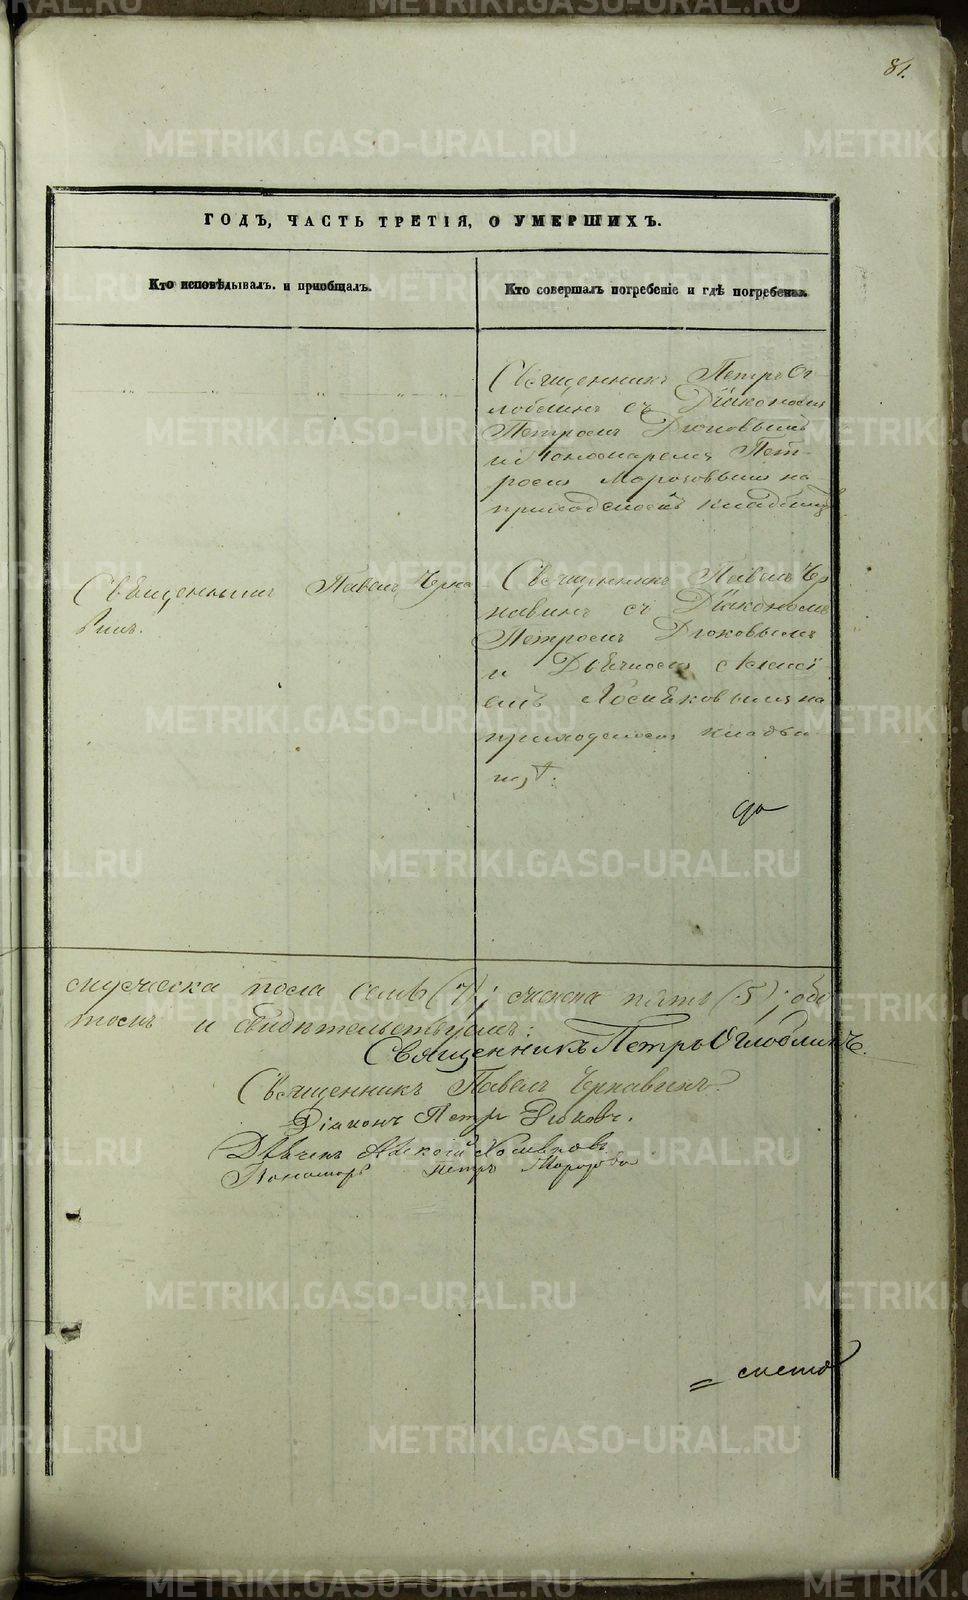 81.
ГОДЪ, ЧАСТЬ ТРЕТІЯ, О УМЕРШИХЪ.
Кто исповѣдывалъ и пріобщалъ.
Кто совершалъ погребеніе и гдѣ погребены.
Священникъ Петръ Ог
лоблинъ съ Діакономъ
Петромъ Дюковымъ
и Пономаремъ Пет-
ромъ Морозовымъ на
приходскомъ кладбищѣ
Священникъ Павелъ Черна
винъ.
Священникъ Павелъ Чер
навинъ съ Діакономъ
Петромъ Дюковымъ
и Дьячкомъ Алексѣ
емъ
приходскомъ кладби
щѣ.
мужеска пола семь (7); женска пять (5);
томъ и свидѣтельствуемъ:
Священникъ Петръ Оглоблинъ.
Священникъ Павелъ Чернавинъ
Діаконъ Петръ Дюковъ.
Дьячекъ Алексій
Пономарь Петръ Морозовъ
METRIKI.GASO-URAL.RU